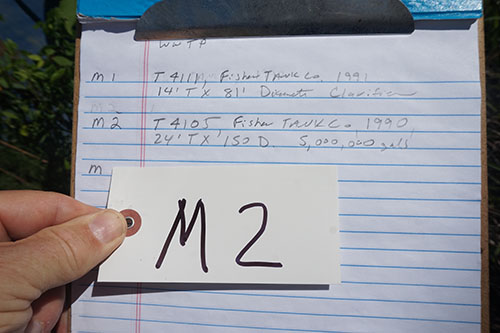 WWTP
M 1 T 4111, Fisher TANK Co, 1991
14' T X 81' Diameter Clarifier
M 2
M 2 T 4105, Fisher TANK Co, 1990
24' T X 150 D. 5,000,000 gals
M
M 2